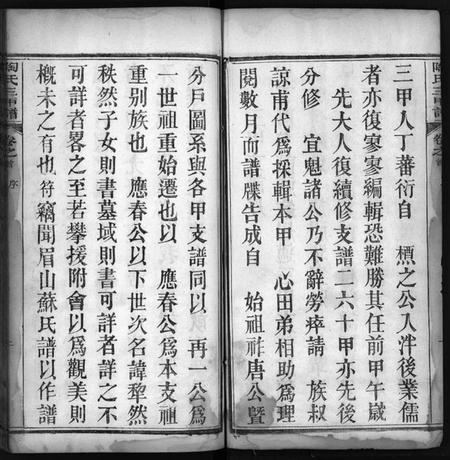 三甲人丁蕃衍自　標之公入泮後業儒
者亦復寥寥編輯恐難勝其任前甲午歲
先大人復續修支譜二六十甲亦先後
分修　宜魁諸公乃不辭勞瘁請　族叔
諒甫代爲採輯本甲　心田弟相助爲理
閱數月而譜牒告成自　始祖祚唐公暨
分戶圖系與各甲支譜同以　再一公爲
一世祖重始遷也以　應春公爲本支祖
重别族也　應春公以下世次名諱犂然
秩然子女則書墓域則書可詳者詳之不
可詳者畧之至若攀援附會以爲觀美則
概未之有也　符竊聞眉山蘇氏譜以作譜
陶氏三甲譜
卷之首　序